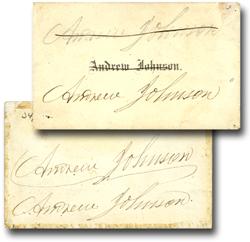 Andrew Johnson
Andrew Johnson.
Andrew Johnson
Andrew Johnson
Andrew Johnson.